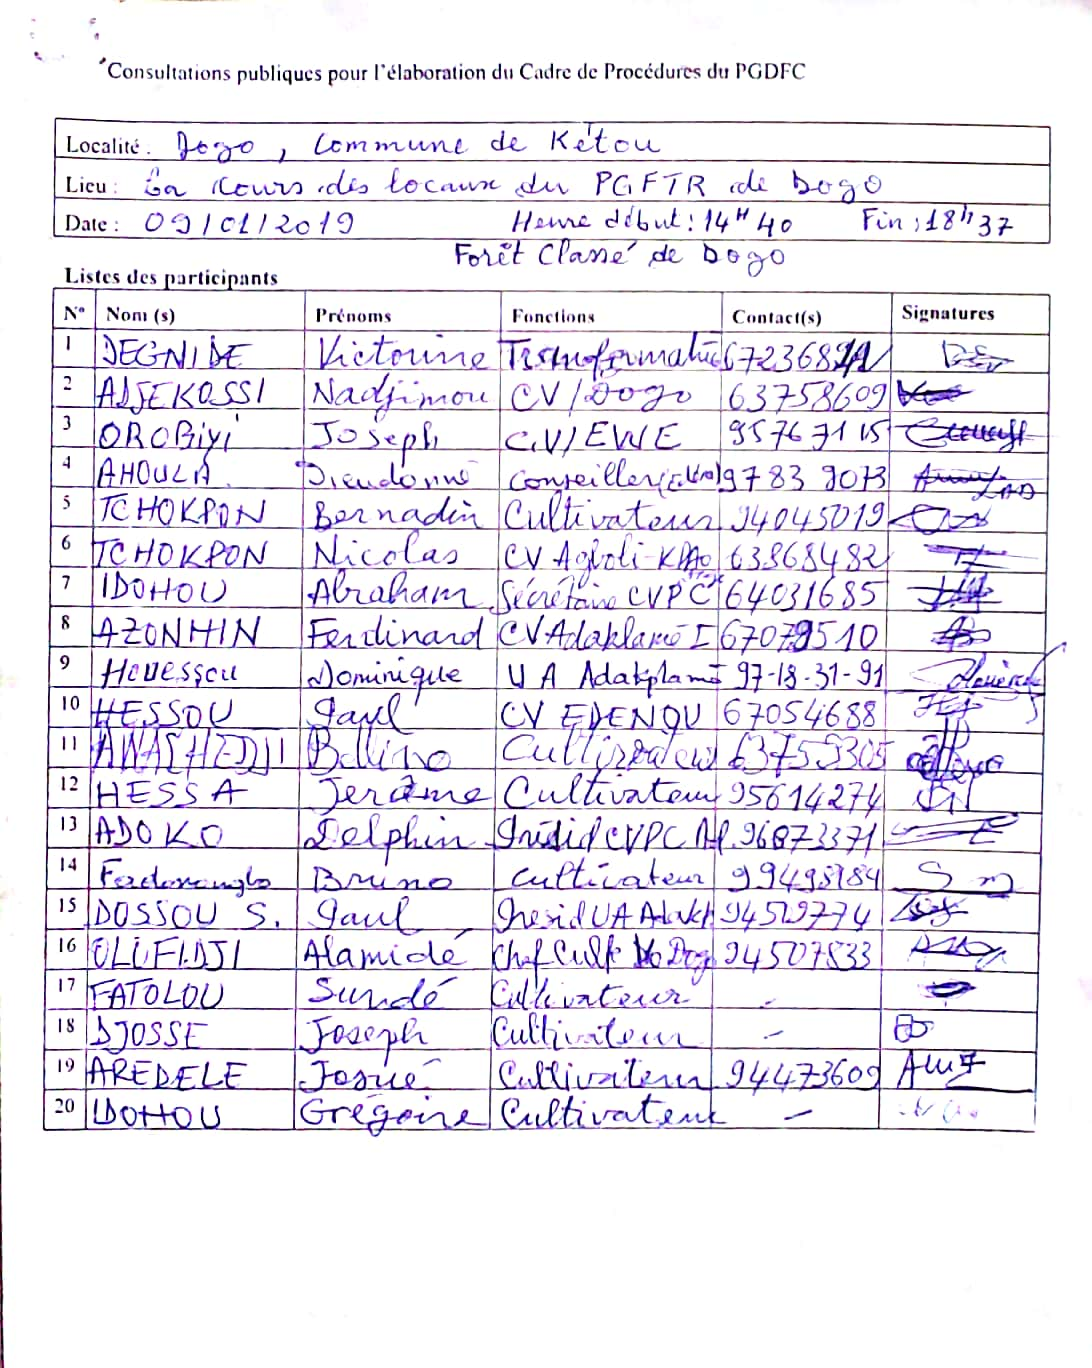 Consultations publiques pour l'élaboration du Cadre de Procédures du PGDFC
Localité : Dogo, Commune de Kétou
Lieu : La Cours des locaux du PGFTR de Dogo
Date : 09/01/2019 Heure début : 14H40 Fin : 18h37
Forêt Classé de Dogo
Listes des participants
N° Nom (s) Prénoms Fonctions Contact(s) Signatures
1 DEGNIDE Victorine
2 ADJEKOSSI Nadjimou CV/Dogo 63758609
3 OROBiyi Joseph C.V/EWE 95767115
4 AHOULA Dieudonné Conseiller 9783 9073
5 TCHOKPON Bernadin Cultivateur 94045019
6 TCHOKPON Nicolas CV Agboli-KPAo 63868482
7 IDOHOU Abraham Sécrétaire CVPC 64031685
8 AZONHIN Ferdinard CV Adaklamè I 67079510
9 HOUESSOU Dominique U A Adakplamè 97-18-31-91
10 HESSOU Paul CV EDENOU 67054688
11 Cultivateur 63755305
12 HESSA Jerôme Cultivateur 95614274
13 ADOKO Delphin Présid CVPC 96873371
14 Bruno Cultivateur 99498984
15 DOSSOU S. Paul Presid UA Adakp 94519774
16 OLUFIDJI Alamidé Chef Culte Dogo 94507833
17 FATOLOU Sundé Cultivateur -
18 DJOSSE Joseph Cultivateur -
19 AREDELE Josué Cultivateur 94473609
20 IDOHOU Grégoire Cultivateur -